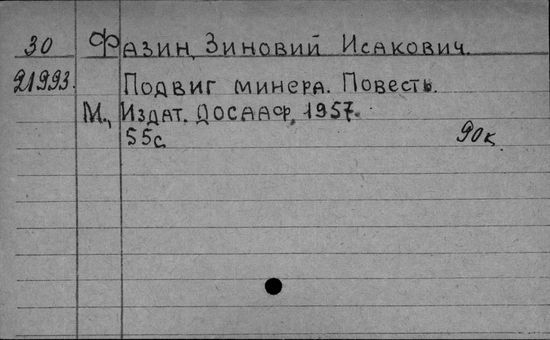 30 Фазин, Зиновий Исакович.
21993. Подвиг минера. Повесть.
М., Издат. ДОСААФ, 1957.
55с. 90к.